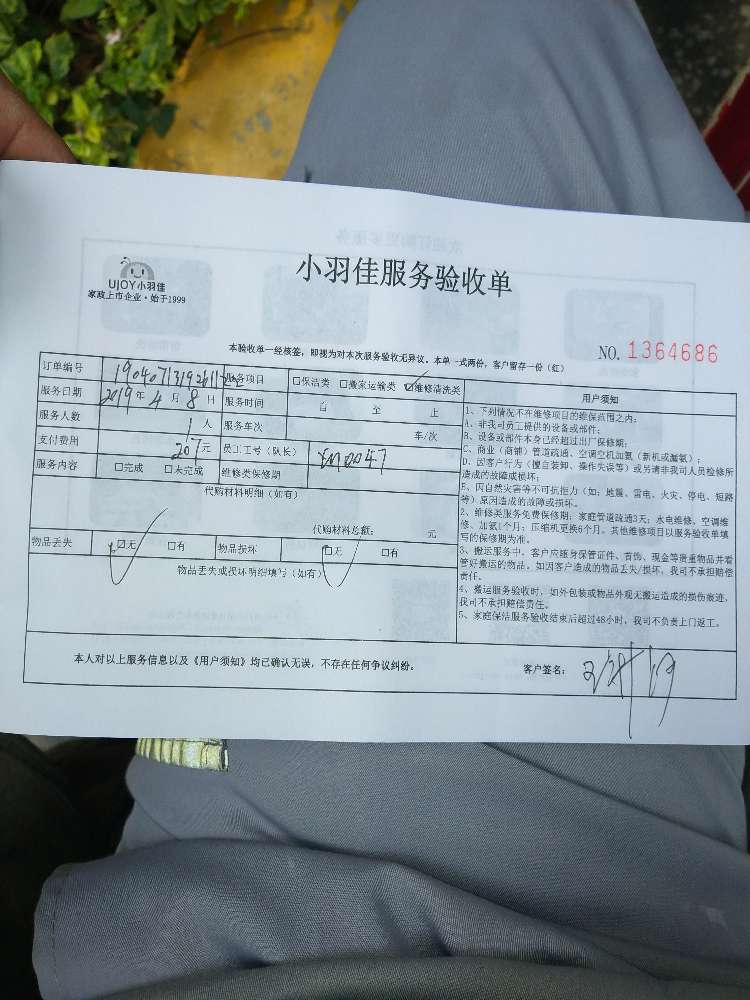 UJOY小羽佳
家政上市企业·始于1999
小羽佳服务验收单
本验收单一经核签，即视为对本次服务验收无异议。本单一式两份，客户留存一份（红）
NO. 1364686
订单编号
服务项目 □保洁类 □搬家运输类 ☑维修清洗类
服务日期 2019年 4 月 8 日 服务时间 自 至 止
服务人数 1 人 服务车次 车/次
支付费用 207元 员工工号（队长） YM0047
服务内容 □完成 □未完成 维修类保修期
代购材料明细（如有）
代购材料总额： 元
物品丢失 ☑无 □有 物品损坏 ☑无 □有
物品丢失或损坏明细填写（如有）
用户须知
1、下列情况不在维修项目的维保范围之内：
A、非我司员工提供的设备或部件；
B、设备或部件本身已经超过出厂保修期；
C、商业（商铺）管道疏通、空调空机加氟（新机或漏氟）；
D、因客户行为（擅自装卸、操作失误等）或另请非我司人员检修所
造成的故障或损坏；
E、因自然灾害等不可抗拒力（如：地震、雷电、火灾、停电、短路
等）原因造成的故障或损坏。
2、维修类服务免费保修期：家庭管道疏通3天；水电维修、空调维
修、加氟1个月；压缩机更换6个月。其他维修项目以服务验收单填
写的保修期为准。
3、搬运服务中，客户应随身保管证件、首饰、现金等贵重物品并看
管好搬运的物品。如因客户造成的物品丢失/损坏，我司不承担赔偿
责任。
4、搬运服务验收时，如外包装或物品外观无搬运造成的损伤痕迹，
我司不承担赔偿责任。
5、家庭保洁服务验收结束后超过48小时，我司不负责上门返工。
本人对以上服务信息以及《用户须知》均已确认无误，不存在任何争议纠纷。
客户签名：